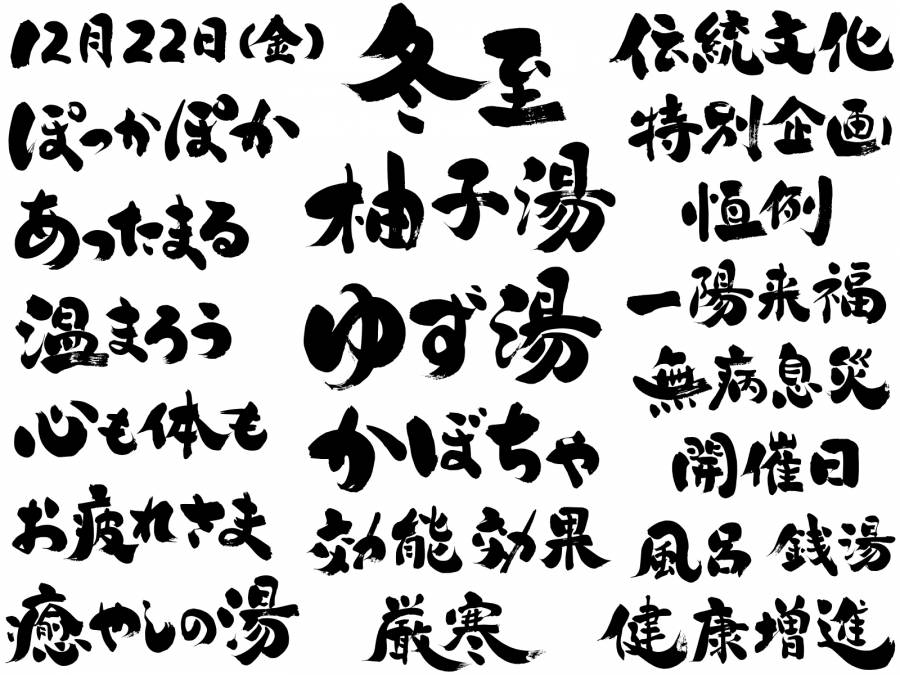 12月22日(金)
ぽっかぽか
あったまる
温まろう
心も体も
お疲れさま
癒やしの湯
冬至
柚子湯
ゆず湯
かぼちゃ
効能 効果
厳寒
伝統文化
特別企画
恒例
一陽来福
無病息災
開催日
風呂 銭湯
健康増進